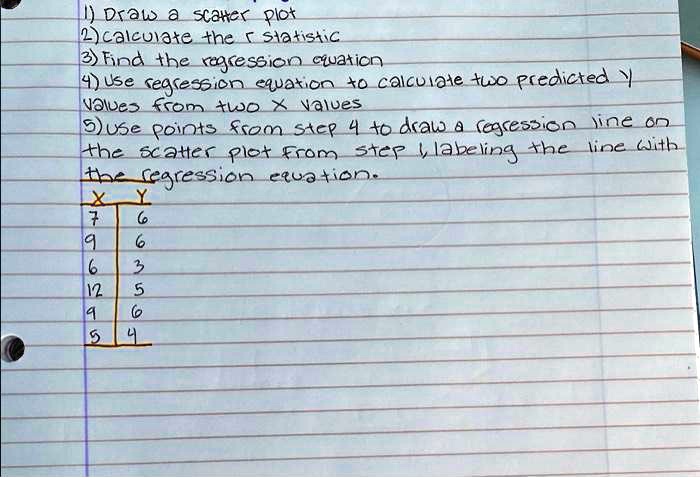 1) Draw a scatter plot
2) Calculate the r statistic
3) Find the regression equation
4) Use regression equation to calculate two predicted y
values from two x values
5) Use points from step 4 to draw a regression line on
the scatter plot from step 1, labeling the line with
the regression equation.
X Y
7 6
9 6
6 3
12 5
9 6
5 4